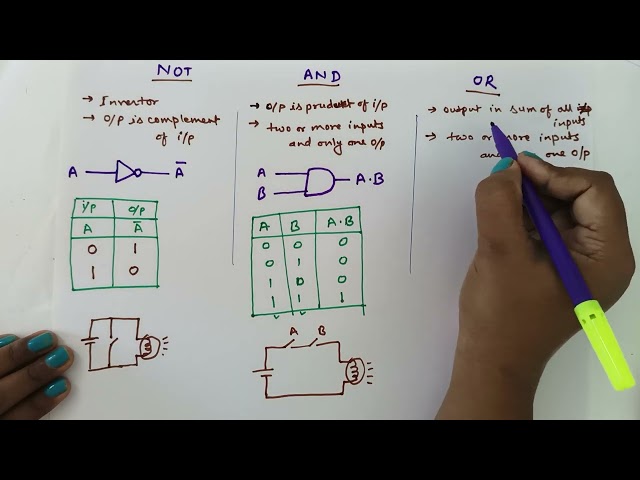 NOT
→ Invertor
→ O/P is complement
of i/p
A
Ā
i/p O/p
A Ā
0 1
1 0
AND
→ O/P is prudukt of i/p
→ two or more inputs
and only one O/P
A
B
A.B
A B A.B
0 0 0
0 1 0
1 0 0
1 1 1
A B
OR
→ output in sum of all
inputs
→ two or more inputs
and one O/P